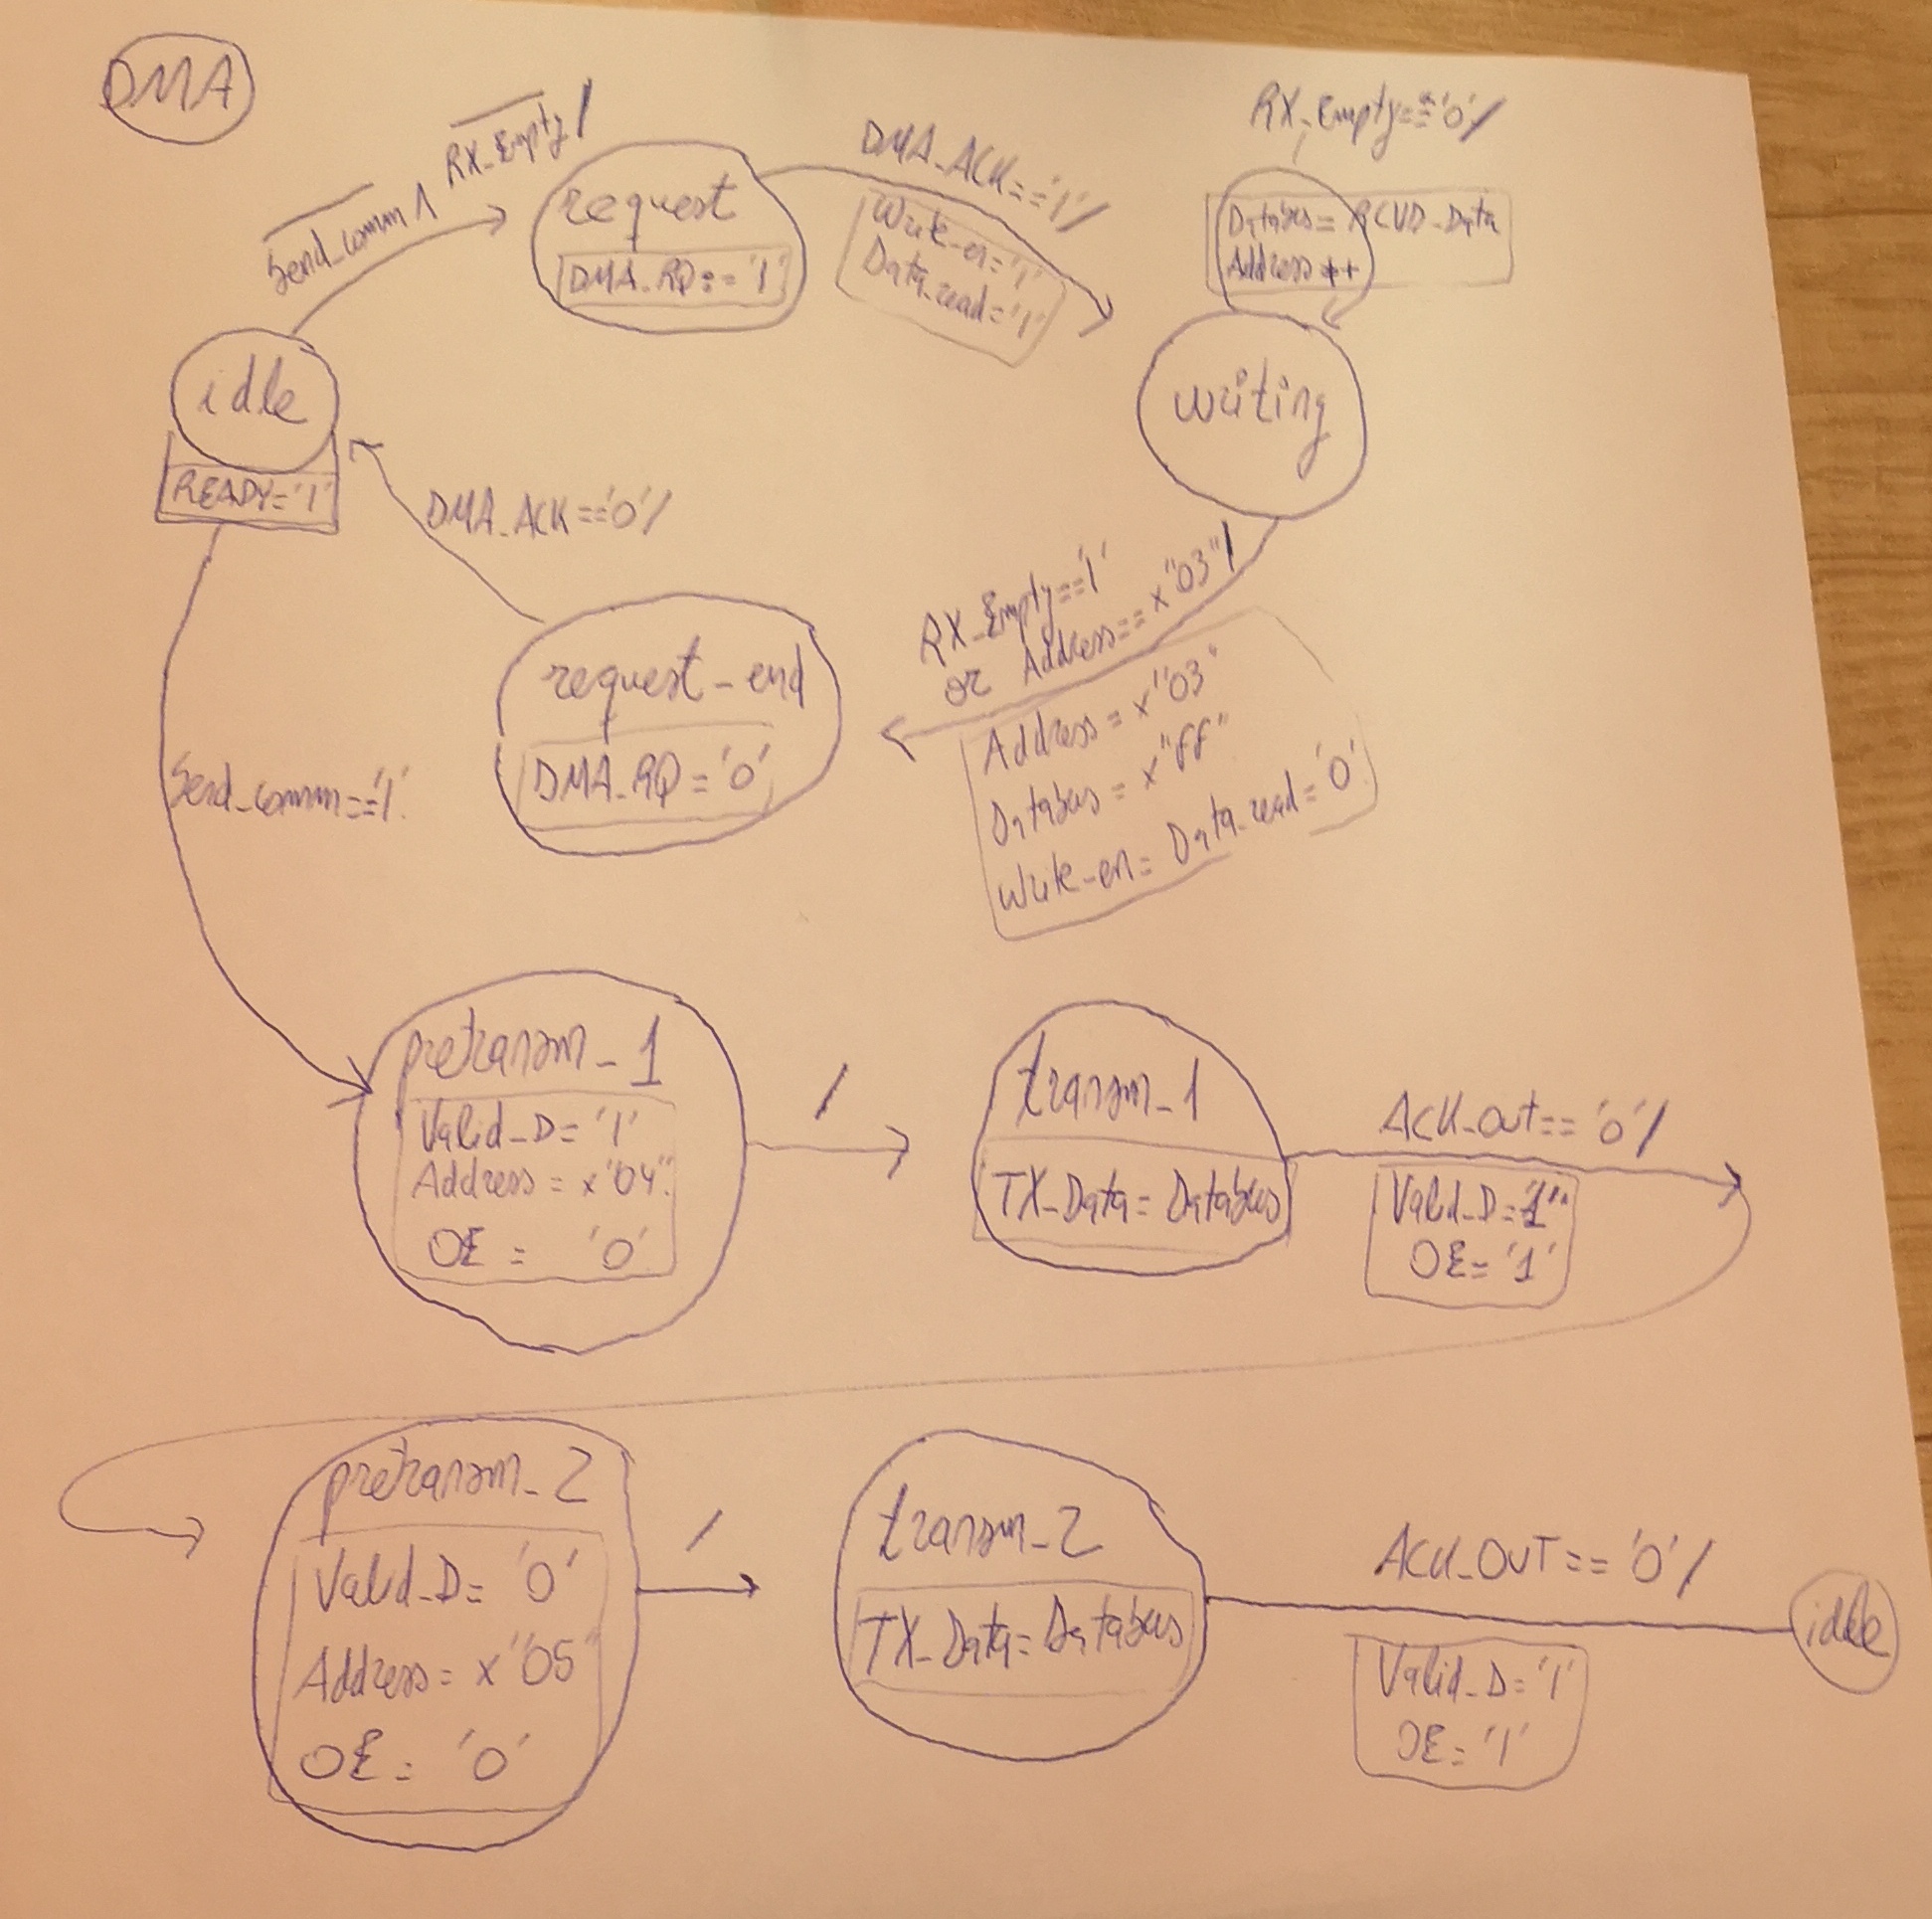 DMA
Send_comm ∧ RX_Empty /
request
DMA_RQ:='1'
DMA_ACK=='1'/
Write_en='1'
Data_read='1'
RX_Empty=='0'/
Databus= RCVD_Data
Address++
idle
READY='1'
writing
DMA_ACK=='0'/
RX_Empty=='1'
or Address==x"03"/
Address=x"03"
Databus=x"FF"
Write_en=Data_read='0'
request_end
DMA_RQ='0'
Send_comm=='1'
pretransm_1
Valid_D='1'
Address=x"04"
OE = '0'
/
transm_1
TX_Data=Databus
ACK_out=='0'/
Valid_D='1'
OE='1'
pretransm_2
Valid_D='0'
Address=x"05"
OE='0'
/
transm_2
TX_Data=Databus
ACK_OUT=='0'/
Valid_D='1'
OE='1'
idle